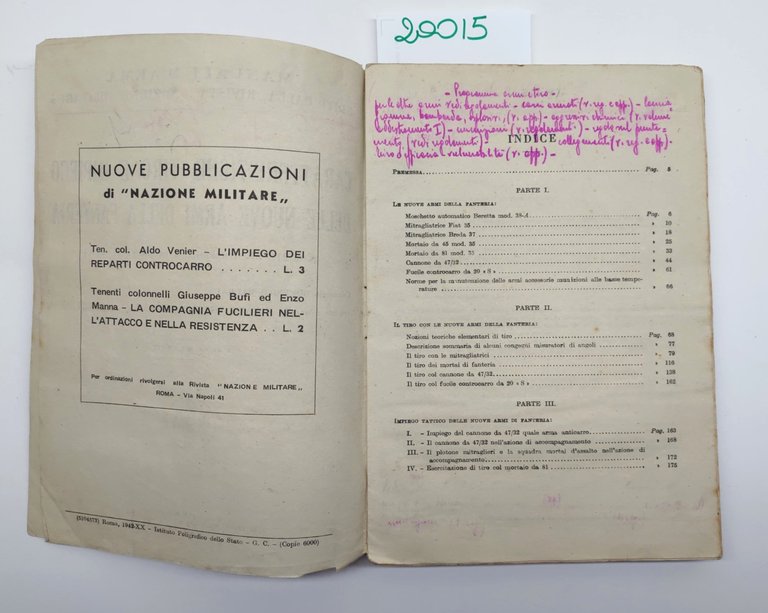 20015
NUOVE PUBBLICAZIONI
di "NAZIONE MILITARE„
Ten. col. Aldo Venier – L'IMPIEGO DEI
REPARTI CONTROCARRO . . . . . . . L. 3
Tenenti colonnelli Giuseppe Bufi ed Enzo
Manna – LA COMPAGNIA FUCILIERI NEL-
L'ATTACCO E NELLA RESISTENZA . . L. 2
Per ordinazioni rivolgersi alla Rivista "NAZIONE MILITARE„
ROMA – Via Napoli 41
(8104573) Roma, 1942-XX - Istituto Poligrafico dello Stato - G. C. - (Copie 6000)
- Programma armi e tiro -
INDICE
PREMESSA Pag. 5
PARTE I.
LE NUOVE ARMI DELLA FANTERIA:
Moschetto automatico Beretta mod. 38-A Pag. 6
Mitragliatrice Fiat 35 » 10
Mitragliatrice Breda 37 » 18
Mortaio da 45 mod. 35 » 25
Mortaio da 81 mod. 35 » 33
Cannone da 47/32 » 44
Fucile controcarro da 20 « S » » 61
Norme per la manutenzione delle armi accessorie munizioni alle basse tempe-
rature » 66
PARTE II.
IL TIRO CON LE NUOVE ARMI DELLA FANTERIA:
Nozioni teoriche elementari di tiro Pag. 68
Descrizione sommaria di alcuni congegni misuratori di angoli » 77
Il tiro con le mitragliatrici » 79
Il tiro dei mortai di fanteria » 116
Il tiro col cannone da 47/32 » 138
Il tiro col fucile controcarro da 20 « S » » 162
PARTE III.
IMPIEGO TATTICO DELLE NUOVE ARMI DI FANTERIA:
I. - Impiego del cannone da 47/32 quale arma anticarro Pag. 163
II. - Il cannone da 47/32 nell'azione di accompagnamento » 168
III. - Il plotone mitraglieri e la squadra mortai d'assalto nell'azione di
accompagnamento » 172
IV. - Esercitazione di tiro col mortaio da 81 » 175